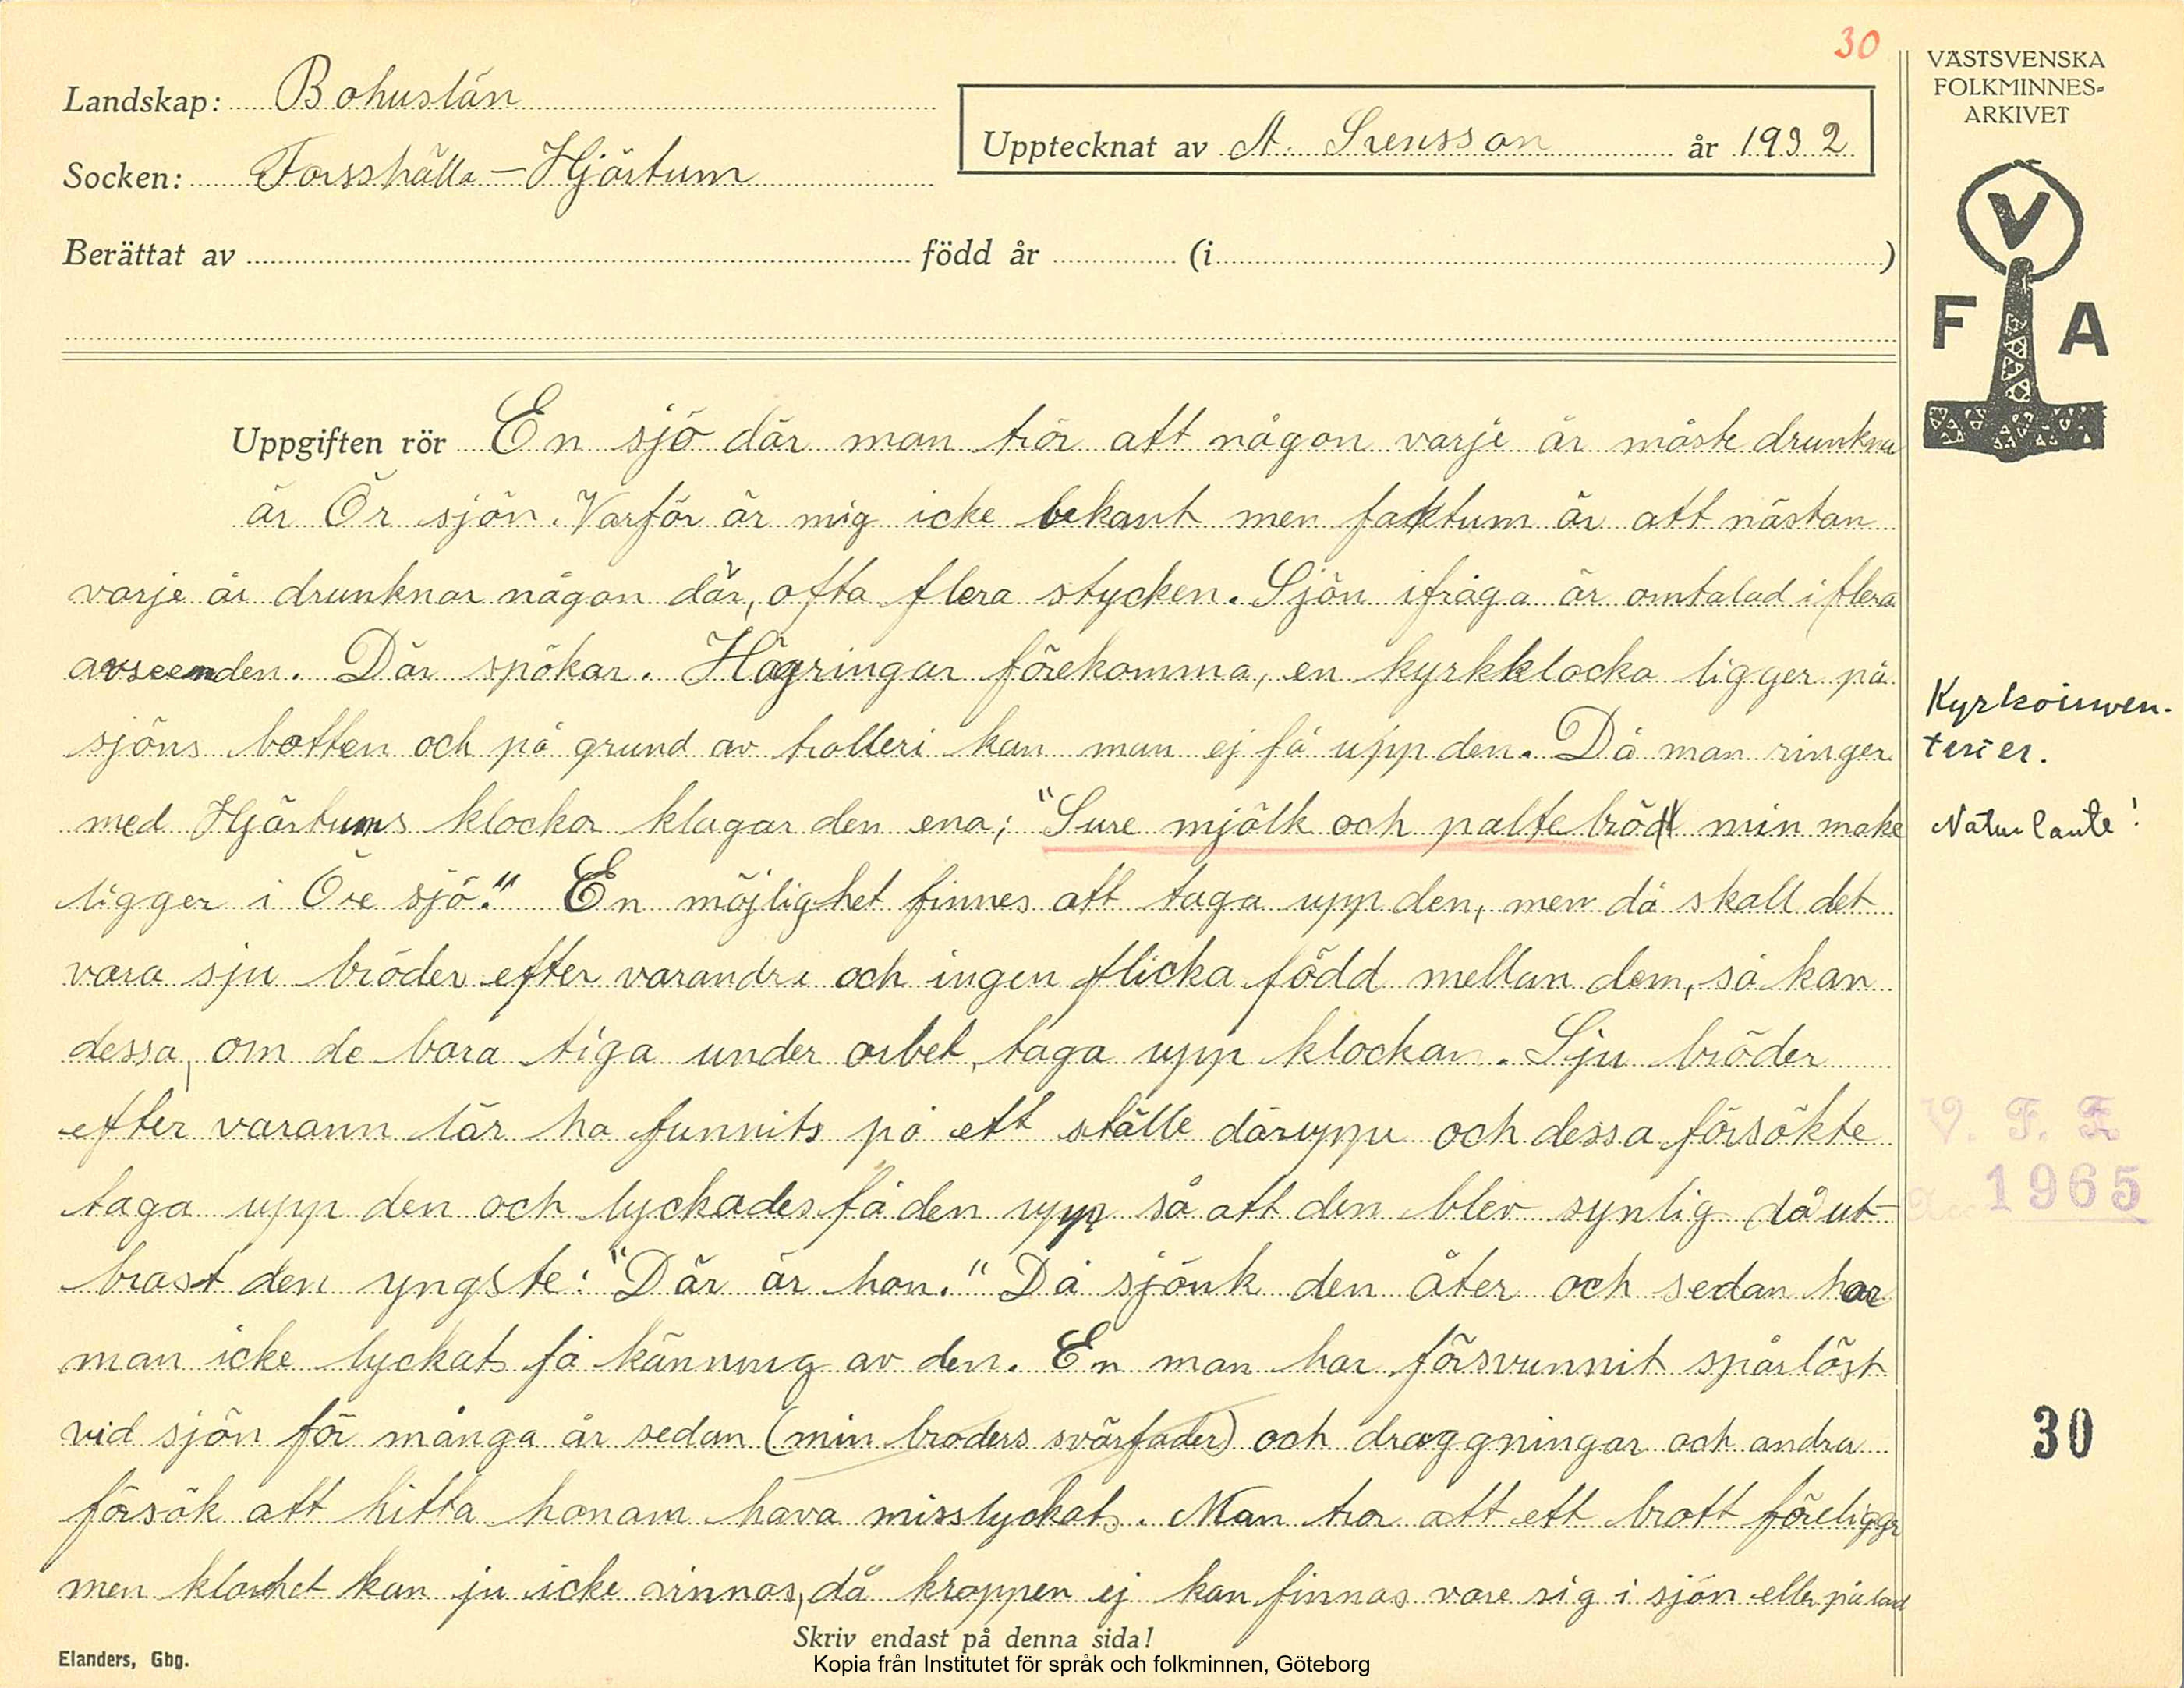 30
VÄSTSVENSKA
FOLKMINNES-
ARKIVET
Landskap: Bohuslän
Upptecknat av A. Svensson år 1932
Socken: Forsshälla - Hjärtum
Berättat av född år (i )
V
F A
Uppgiften rör En sjö där man tror att någon varje år måste drunkna
är Ör sjön. Varför är mig icke bekant men faktum är att nästan
varje år drunknar någon där, ofta flera stycken. Sjön ifråga är omtalad i flera
avseenden. Där spökar. Hägringar förekomma, en kyrkklocka ligger på
sjöns botten och på grund av trolleri kan man ej få upp den. Då man ringer
med Hjärtums klockor klagar den ena; "Sure mjölk och paltebröd min make
ligger i Öre sjö." En möjlighet finnes att taga upp den, men då skall det
vara sju bröder efter varandra och ingen flicka född mellan dem, så kan
dessa, om de bara tiga under arbet, taga upp klockan. Sju bröder
efter varann lär ha funnits på ett ställe däruppe och dessa försökte
taga upp den och lyckades få den upp så att den blev synlig då ut-
brast den yngste: "Där är hon." Då sjönk den åter och sedan har
man icke lyckats få känning av den. En man har försvunnit spårlöst
vid sjön för många år sedan (min broders svärfader) och draggningar och andra
försök att hitta honom hava misslyckats. Man tror att ett brott föreligger
men klarhet kan ju icke vinnas, då kroppen ej kan finnas vare sig i sjön eller på land
Kyrkoinven-
terier.
Naturlaute!
V. F. F
1965
30
Skriv endast på denna sida!
Elanders, Gbg.
Kopia från Institutet för språk och folkminnen, Göteborg